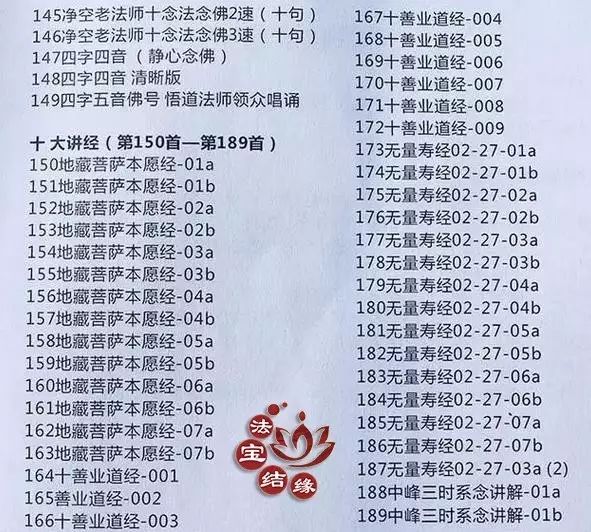 145净空老法师十念法念佛2速（十句）
146净空老法师十念法念佛3速（十句）
147四字四音（ 静心念佛 ）
148四字四音 清晰版
149四字五音佛号 悟道法师领众唱诵
十 大讲经（ 第150首—第189首 ）
150地藏菩萨本愿经-01a
151地藏菩萨本愿经-01b
152地藏菩萨本愿经-02a
153地藏菩萨本愿经-02b
154地藏菩萨本愿经-03a
155地藏菩萨本愿经-03b
156地藏菩萨本愿经-04a
157地藏菩萨本愿经-04b
158地藏菩萨本愿经-05a
159地藏菩萨本愿经-05b
160地藏菩萨本愿经-06a
161地藏菩萨本愿经-06b
162地藏菩萨本愿经-07a
163地藏菩萨本愿经-07b
164十善业道经-001
165善业道经-002
166十善业道经-003
167十善业道经-004
168十善业道经-005
169十善业道经-006
170十善业道经-007
171十善业道经-008
172十善业道经-009
173无量寿经02-27-01a
174无量寿经02-27-01b
175无量寿经02-27-02a
176无量寿经02-27-02b
177无量寿经02-27-03a
178无量寿经02-27-03b
179无量寿经02-27-04a
180无量寿经02-27-04b
181无量寿经02-27-05a
182无量寿经02-27-05b
183无量寿经02-27-06a
184无量寿经02-27-06b
185无量寿经02-27-07a
186无量寿经02-27-07b
187无量寿经02-27-03a (2)
188中峰三时系念讲解-01a
189中峰三时系念讲解-01b
法宝结缘